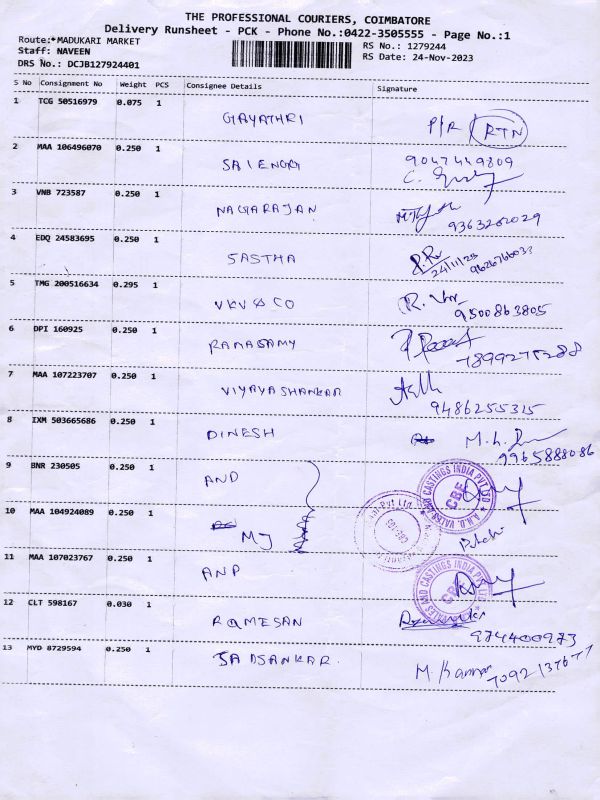 THE PROFESSIONAL COURIERS, COIMBATORE
Delivery Runsheet - PCK - Phone No.:0422-3505555 - Page No.:1
Route:*MADUKARI MARKET
Staff: NAVEEN
DRS No.: DCJB127924401
RS No.: 1279244
RS Date: 24-Nov-2023
S No Consignment No Weight PCS Consignee Details Signature
1 TCG 50516979 0.075 1 GAYATHRI P/R RTN
2 MAA 106496070 0.250 1 SAIENGG 9047449809
3 VNB 723587 0.250 1 NAGARAJAN 9363202029
4 EDQ 24583695 0.250 1 SASTHA P.R
24/11/23
5 TMG 200516634 0.295 1 VKV & CO 9500863805
6 DPI 160925 0.250 1 RAMASAMY
7 MAA 107223707 0.250 1 VIJAYASHANKAR 9486255315
8 IXM 503665686 0.250 1 DINESH 9965888086
9 BNR 230505 0.250 1 AND
10 MAA 104924089 0.250 1 MJ
11 MAA 107023767 0.250 1 AND
12 CLT 598167 0.030 1 RAMESAN 974400973
13 MYD 8729594 0.250 1 M Kannan
A.N.D. VALVES AND CASTINGS INDIA PVT LTD
CBE
VALVES AND CASTINGS INDIA PVT LTD
CBE